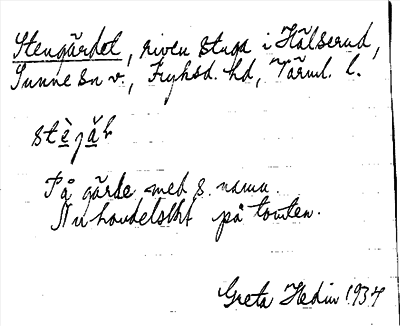 Stengärdet, riven stuga i Hälserud,
Sunne sn v., Fryksd. hd, Värml. l.
På gärde med s. namn.
Nu på tomten.
Greta Hedin 1937